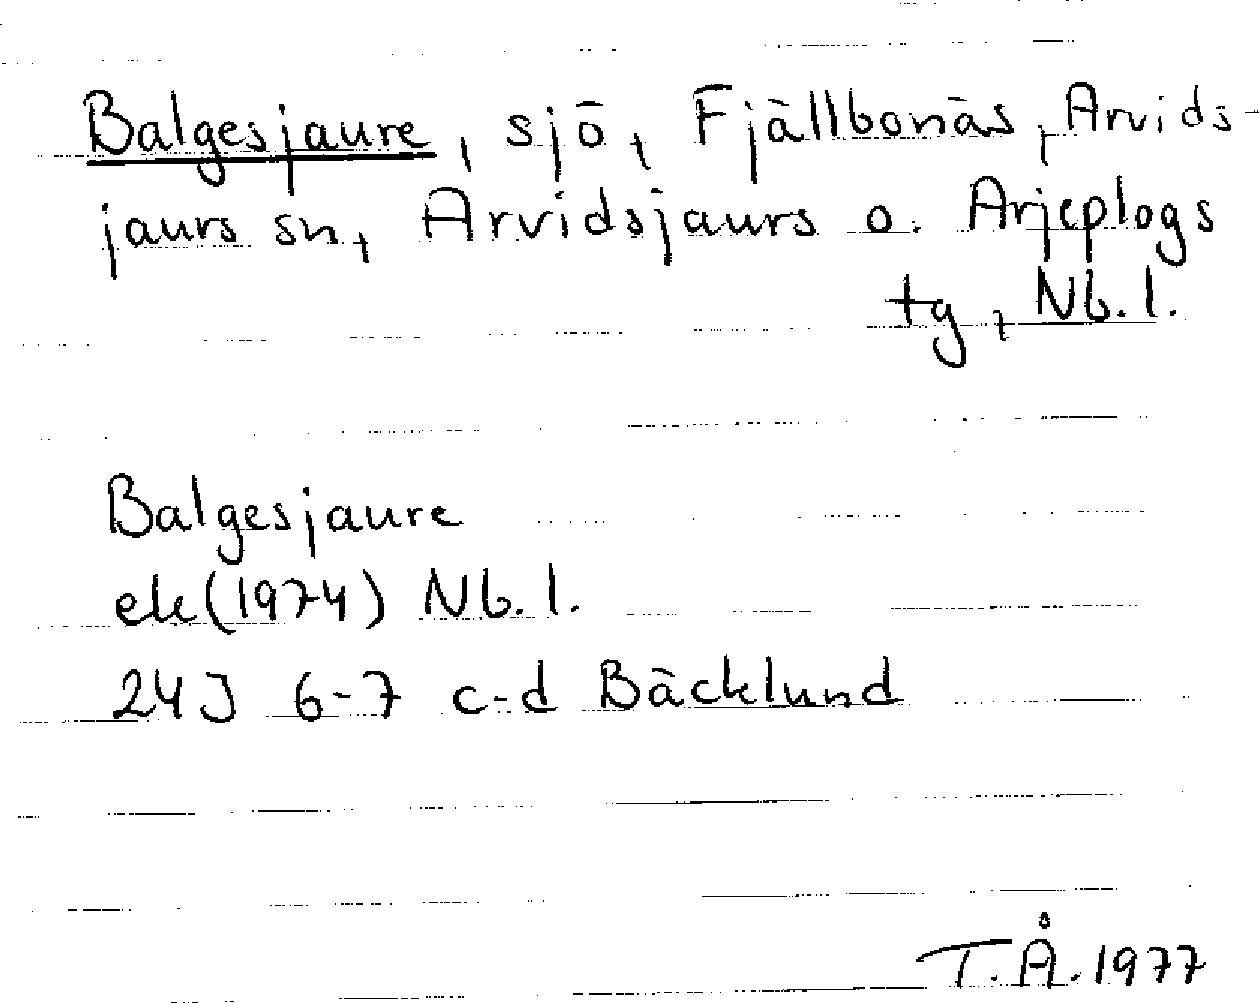 Balgesjaure, sjö, Fjällbonäs, Arvids-
jaurs sn, Arvidsjaurs o. Arjeplogs
tg, Nb. l.
Balgesjaure
ek (1974) Nb. l.
24J 6-7 c-d Bäcklund
T.Å. 1977